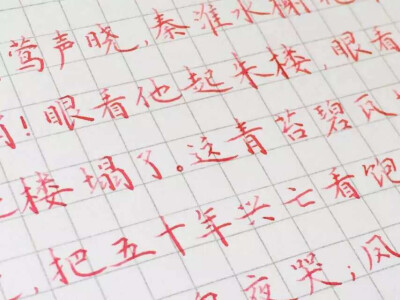 莺声晓,秦淮水榭
!眼看他起朱楼,眼看
楼塌了。这青苔碧瓦
,把五十年兴亡看饱
夜哭;凤